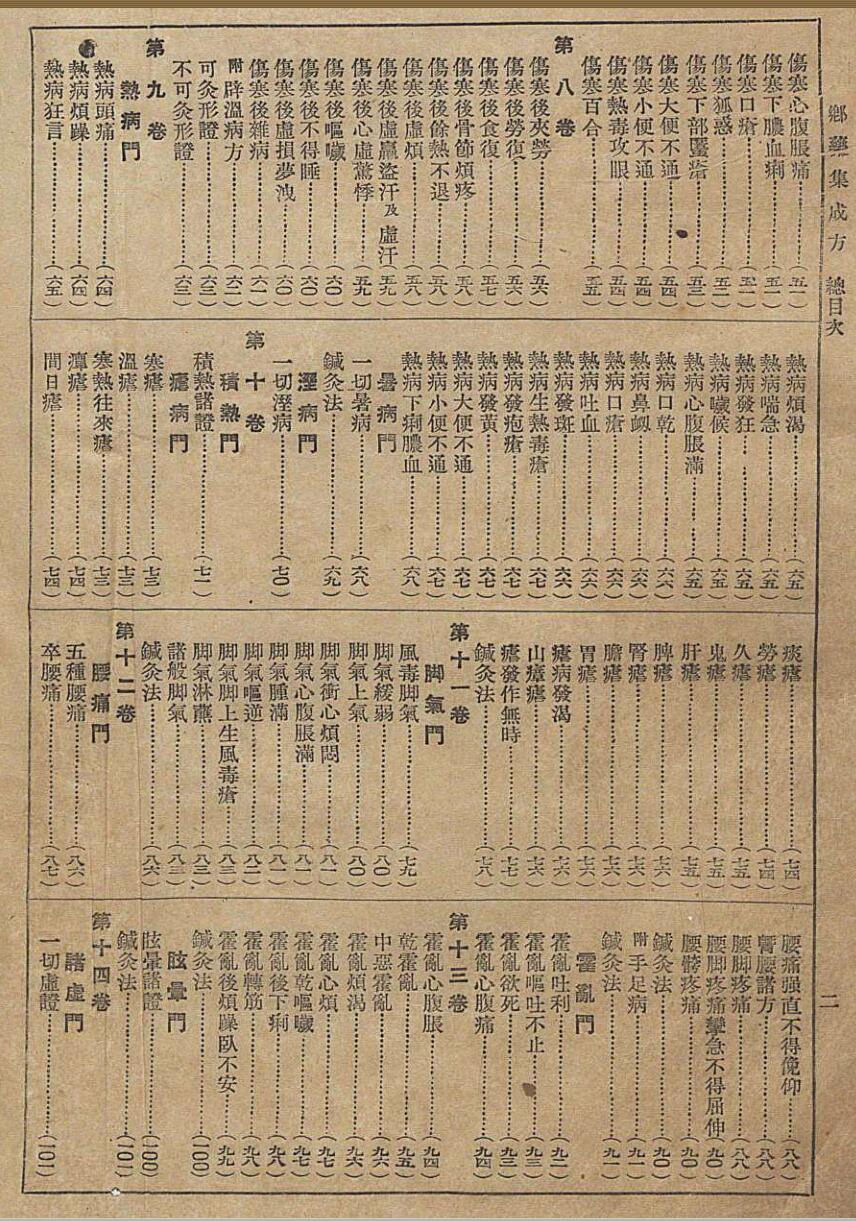 鄉藥集成方　總目次
二
傷寒心腹脹痛……(五一)
傷寒下膿血痢……(五一)
傷寒口瘡……(五一)
傷寒狐惑……(五二)
傷寒下部䘌瘡……(五三)
傷寒大便不通……(五四)
傷寒小便不通……(五四)
傷寒熱毒攻眼……(五四)
傷寒百合……(五五)
第八卷
傷寒後夾勞……(五六)
傷寒後勞復……(五六)
傷寒後食復……(五七)
傷寒後骨節煩疼……(五八)
傷寒後餘熱不退……(五八)
傷寒後虛煩……(五八)
傷寒後虛羸盜汗及虛汗……(五九)
傷寒後心虛驚悸……(五九)
傷寒後嘔噦……(六〇)
傷寒後不得睡……(六〇)
傷寒後虛損夢洩……(六〇)
傷寒後雜病……(六一)
附辟溫病方……(六二)
可灸形證……(六三)
不可灸形證……(六三)
第九卷
熱病門
熱病頭痛……(六四)
熱病煩躁……(六四)
熱病狂言……(六五)
熱病煩渴……(六五)
熱病喘急……(六五)
熱病發狂……(六五)
熱病噦候……(六五)
熱病心腹脹滿……(六五)
熱病口乾……(六六)
熱病鼻衂……(六六)
熱病口瘡……(六六)
熱病吐血……(六六)
熱病發斑……(六六)
熱病生熱毒瘡……(六七)
熱病發疱瘡……(六七)
熱病發黃……(六七)
熱病大便不通……(六七)
熱病小便不通……(六七)
熱病下痢膿血……(六八)
暑病門
一切暑病……(六八)
鍼灸法……(六九)
溼病門
一切溼病……(七〇)
第十卷
積熱門
積熱諸證……(七一)
瘧病門
寒瘧……(七三)
溫瘧……(七三)
寒熱往來瘧……(七三)
癉瘧……(七四)
間日瘧……(七四)
痰瘧……(七四)
勞瘧……(七四)
久瘧……(七五)
鬼瘧……(七五)
肝瘧……(七五)
脾瘧……(七六)
腎瘧……(七六)
膽瘧……(七六)
胃瘧……(七六)
瘧病發渴……(七六)
山瘴瘧……(七六)
瘧發作無時……(七七)
鍼灸法……(七八)
第十一卷
脚氣門
風毒脚氣……(七九)
脚氣緩弱……(八〇)
脚氣上氣……(八〇)
脚氣衝心煩悶……(八一)
脚氣心腹脹滿……(八一)
脚氣腫滿……(八一)
脚氣嘔逆……(八二)
脚氣脚上生風毒瘡……(八三)
脚氣淋瀝……(八三)
諸般脚氣……(八三)
鍼灸法……(八六)
第十二卷
腰痛門
五種腰痛……(八六)
卒腰痛……(八七)
腰痛强直不得俛仰……(八八)
腎腰諸方……(八八)
腰脚疼痛……(八八)
腰脚疼痛攣急不得屈伸……(九〇)
腰髈疼痛……(九〇)
鍼灸法……(九〇)
附手足病……(九一)
鍼灸法……(九一)
霍亂門
霍亂吐利……(九二)
霍亂嘔吐不止……(九三)
霍亂欲死……(九三)
霍亂心腹痛……(九四)
第十三卷
霍亂心腹脹……(九四)
乾霍亂……(九五)
中惡霍亂……(九六)
霍亂煩渴……(九六)
霍亂心煩……(九七)
霍亂乾嘔噦……(九七)
霍亂後下痢……(九八)
霍亂轉筋……(九八)
霍亂後煩躁臥不安……(九九)
鍼灸法……(一〇〇)
眩暈門
眩暈諸證……(一〇〇)
鍼灸法……(一〇一)
第十四卷
諸虛門
一切虛證……(一〇一)